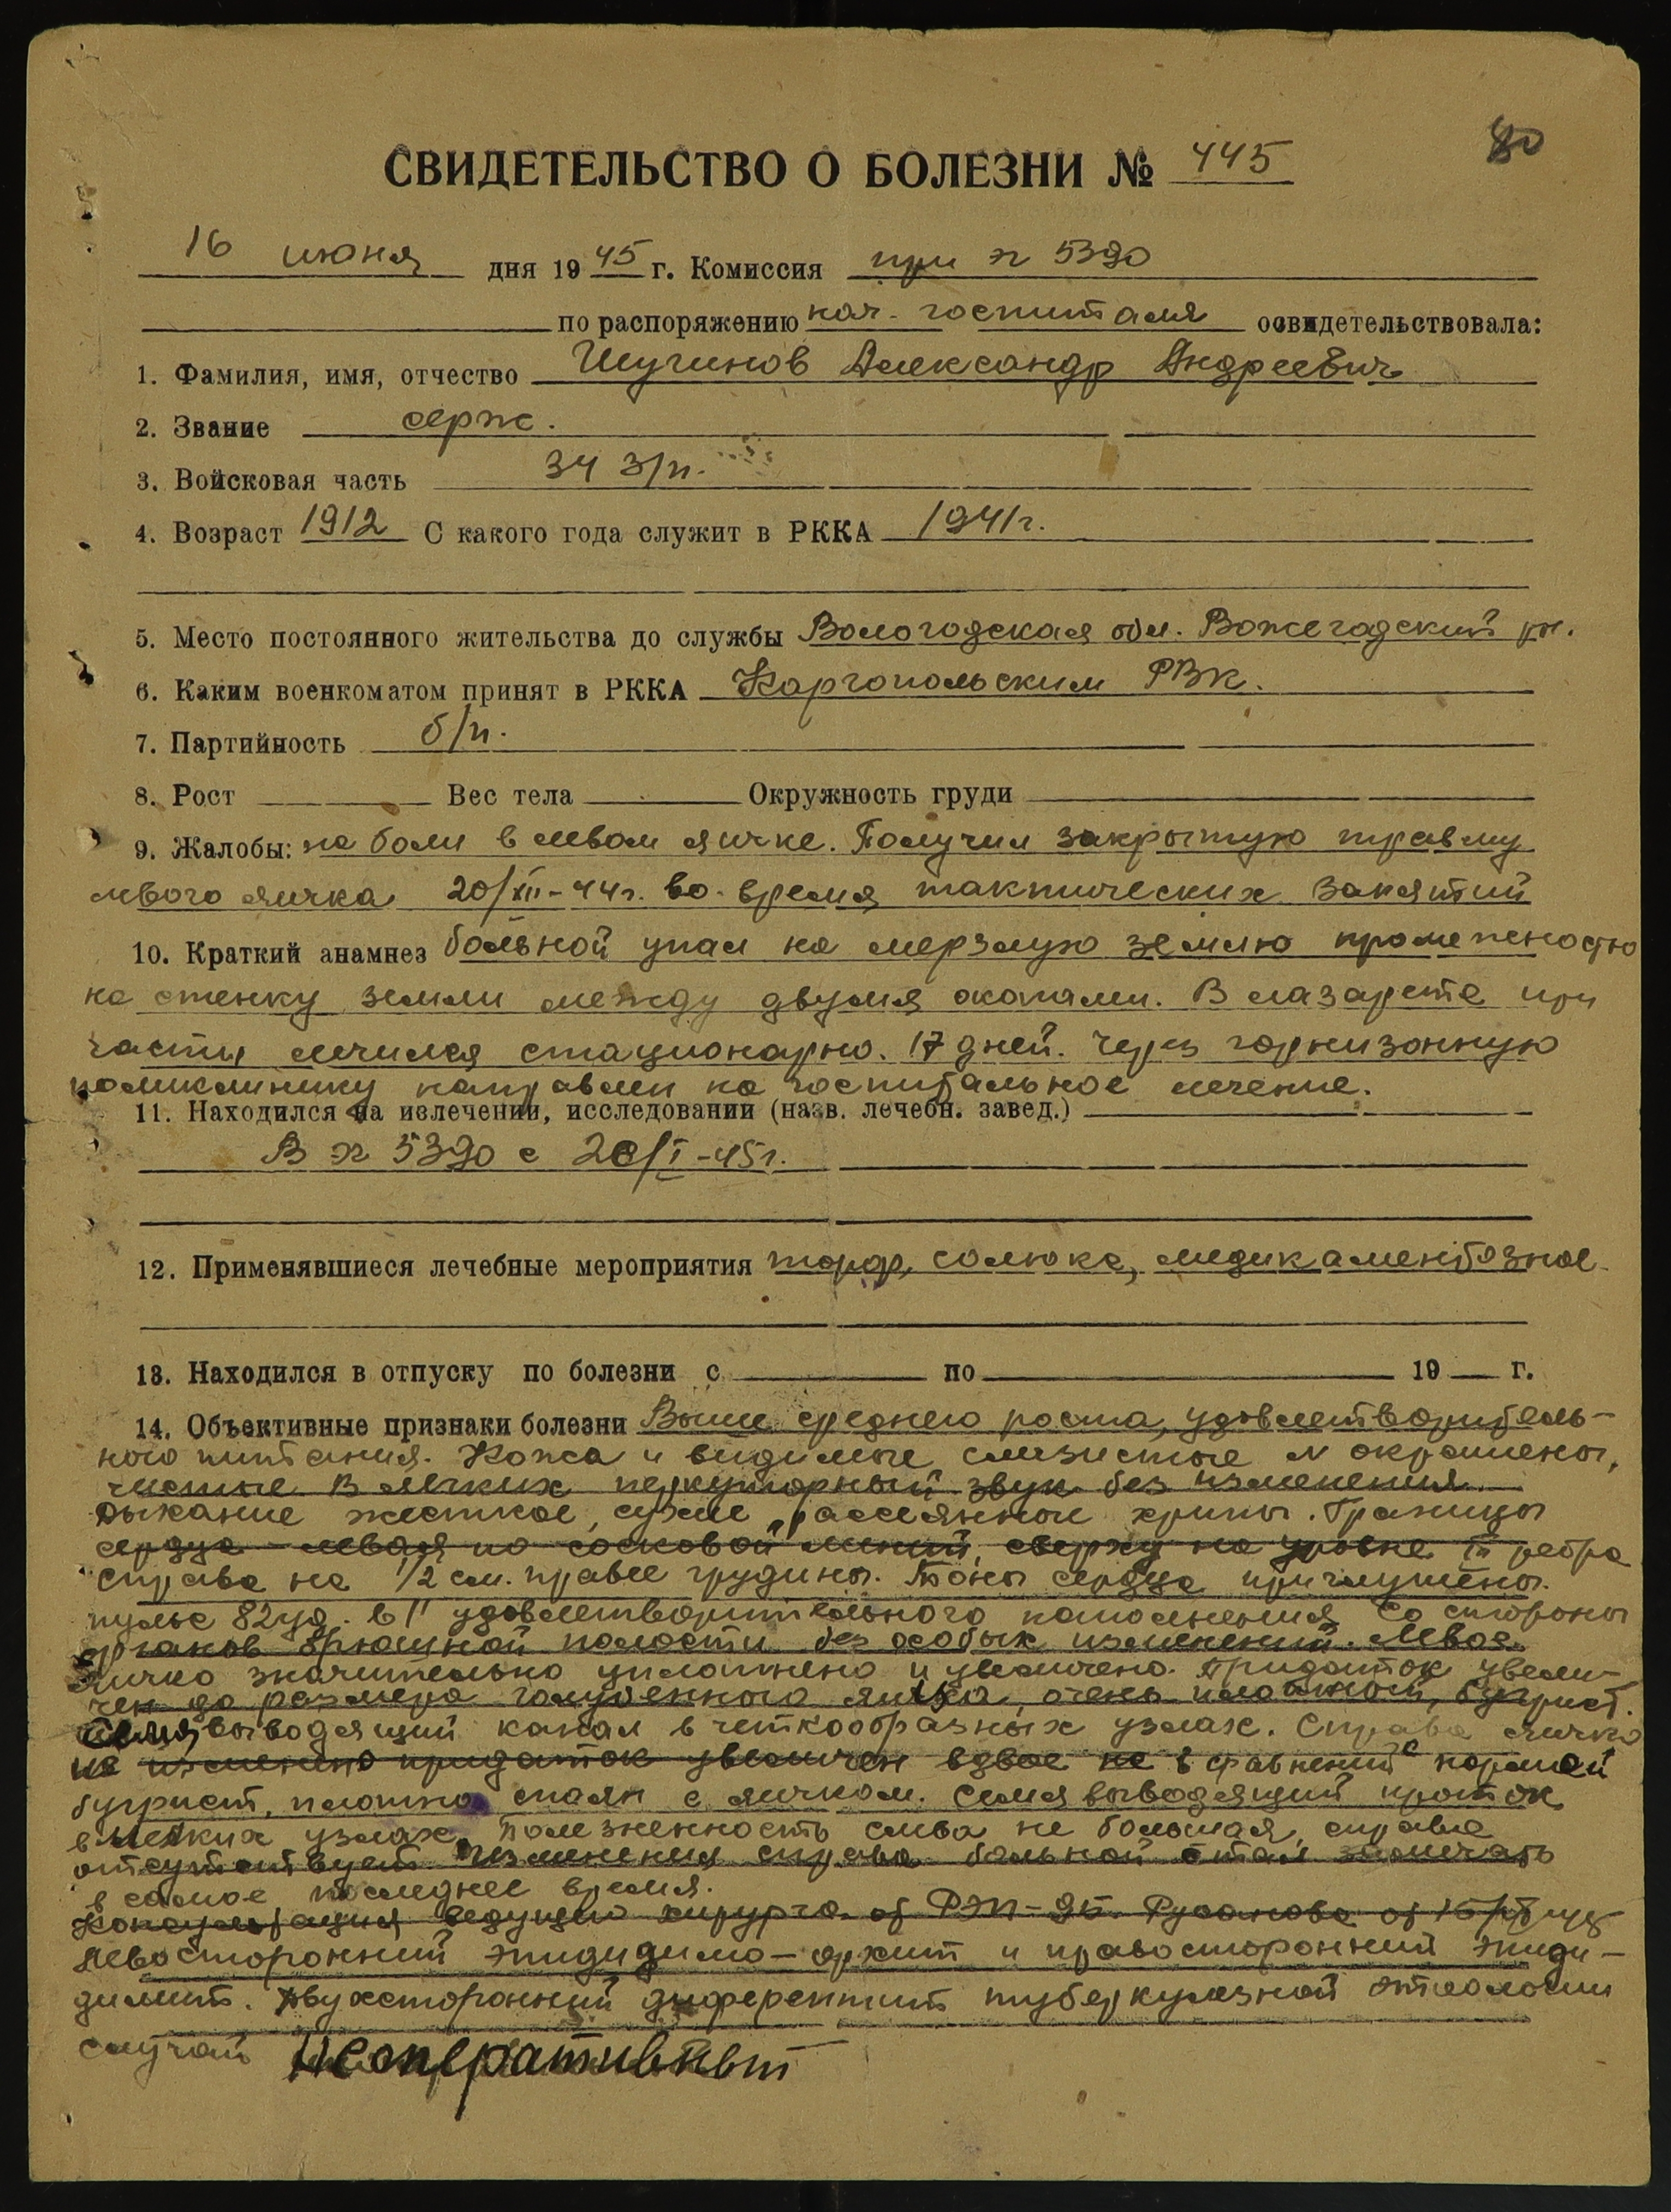 80
СВИДЕТЕЛЬСТВО О БОЛЕЗНИ № 445
16 июня дня 1945 г. Комиссия при эг 5390
по распоряжению нач. госпиталя освидетельствовала:
1. Фамилия, имя, отчество Шугинов Александр Андреевич
2. Звание серж.
3. Войсковая часть 34 з/п.
4. Возраст 1912 С какого года служит в РККА 1941г.
5. Место постоянного жительства до службы Вологодская обл. Вожегадский рн.
6. Каким военкоматом принят в РККА Каргопольским РВК.
7. Партийность б/п.
8. Рост Вес тела Окружность груди
9. Жалобы: на боли в левом яичке. Получил закрытую травму
левого яичка 20/XII-44г. во-время тактических занятий
10. Краткий анамнез больной упал на мерзлую землю промежностью
на стенку земли между двумя окопами. В лазарете при
части лечился стационарно. 17 дней. Через гарнизонную
поликлинику направлен на госпитальное лечение.
11. Находился на излечении, исследовании (назв. лечебн. завед.)
В эг 5390 с 20/I-45г.
12. Применявшиеся лечебные мероприятия торф, солюкс, медикаментозное
13. Находился в отпуску по болезни с по 19 г.
14. Объективные признаки болезни Выше среднего роста, удовлетворитель-
ного питания. Кожа и видимые слизистые N окрашены,
чистые. В легких перкуторный звук без изменения
дыхание жесткое, сухие рассеянные хрипы. Границы
сердца - левая по сосковой линий, сверху на уровне III ребра
справа на 1/2 см. правее грудины. Тоны сердца приглушены.
пульс 82 уд. в 1' удовлетворительного наполнения Со стороны
органов брюшной полости без особых изменений. Левое
яичко значительно уплотнено и увеличено. Придаток увели-
чен до размера голубенного яйца, очень плотный, бугрист.
Семявыводящий канал в четкообразных узлах. Справа яичко
не изменено придаток увеличен вдвое не в сравнений с нормой
бугрист, плотно спаян с яичком. Семявыводящий проток
в мелких узлах. Болезненность слева не большая, справа
отсутствует. Изменения справа больной стал замечать
в самое последнее время.
Консультация ведущего хирурга от РЭП-95 Русанова от
Левосторонний эпидидимо-орхит и правосторонний эпиди-
димит. Двухсторонний диферентит туберкулезной этиологии
случай Неоперативный